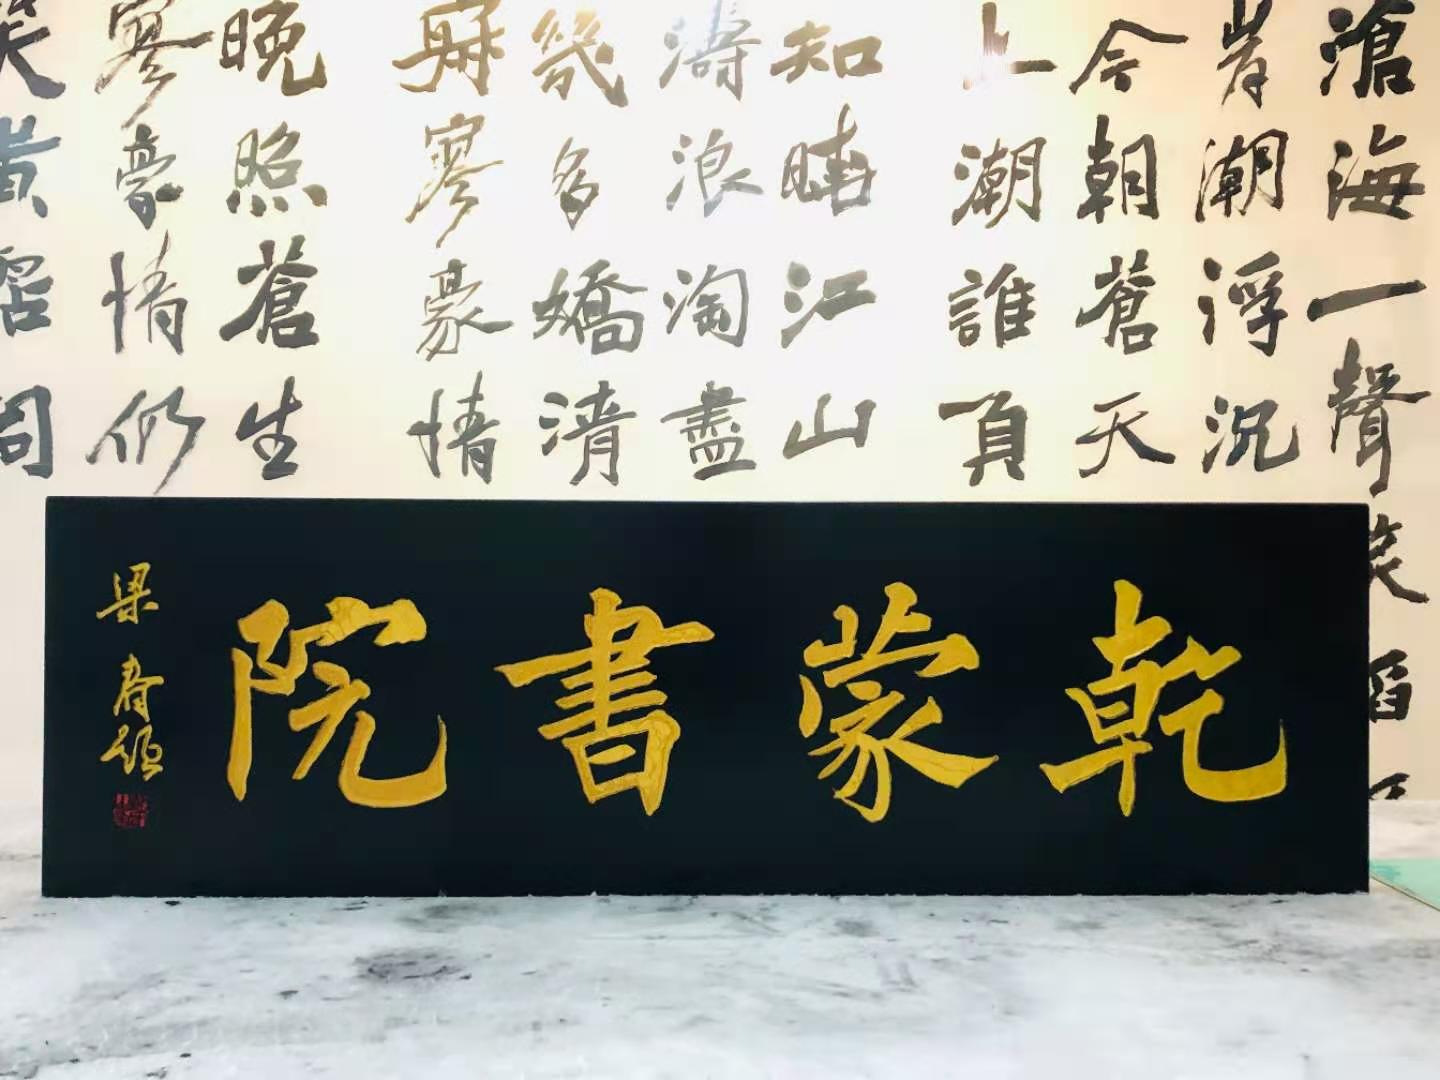 滄海一聲笑滔
岸潮浮沉
今朝蒼天
上潮誰負
知曉江山
濤浪淘盡
幾多嬌清
寂寥豪情
晚照蒼生
寥豪情仍
笑黃霑詞
乾蒙書院
梁